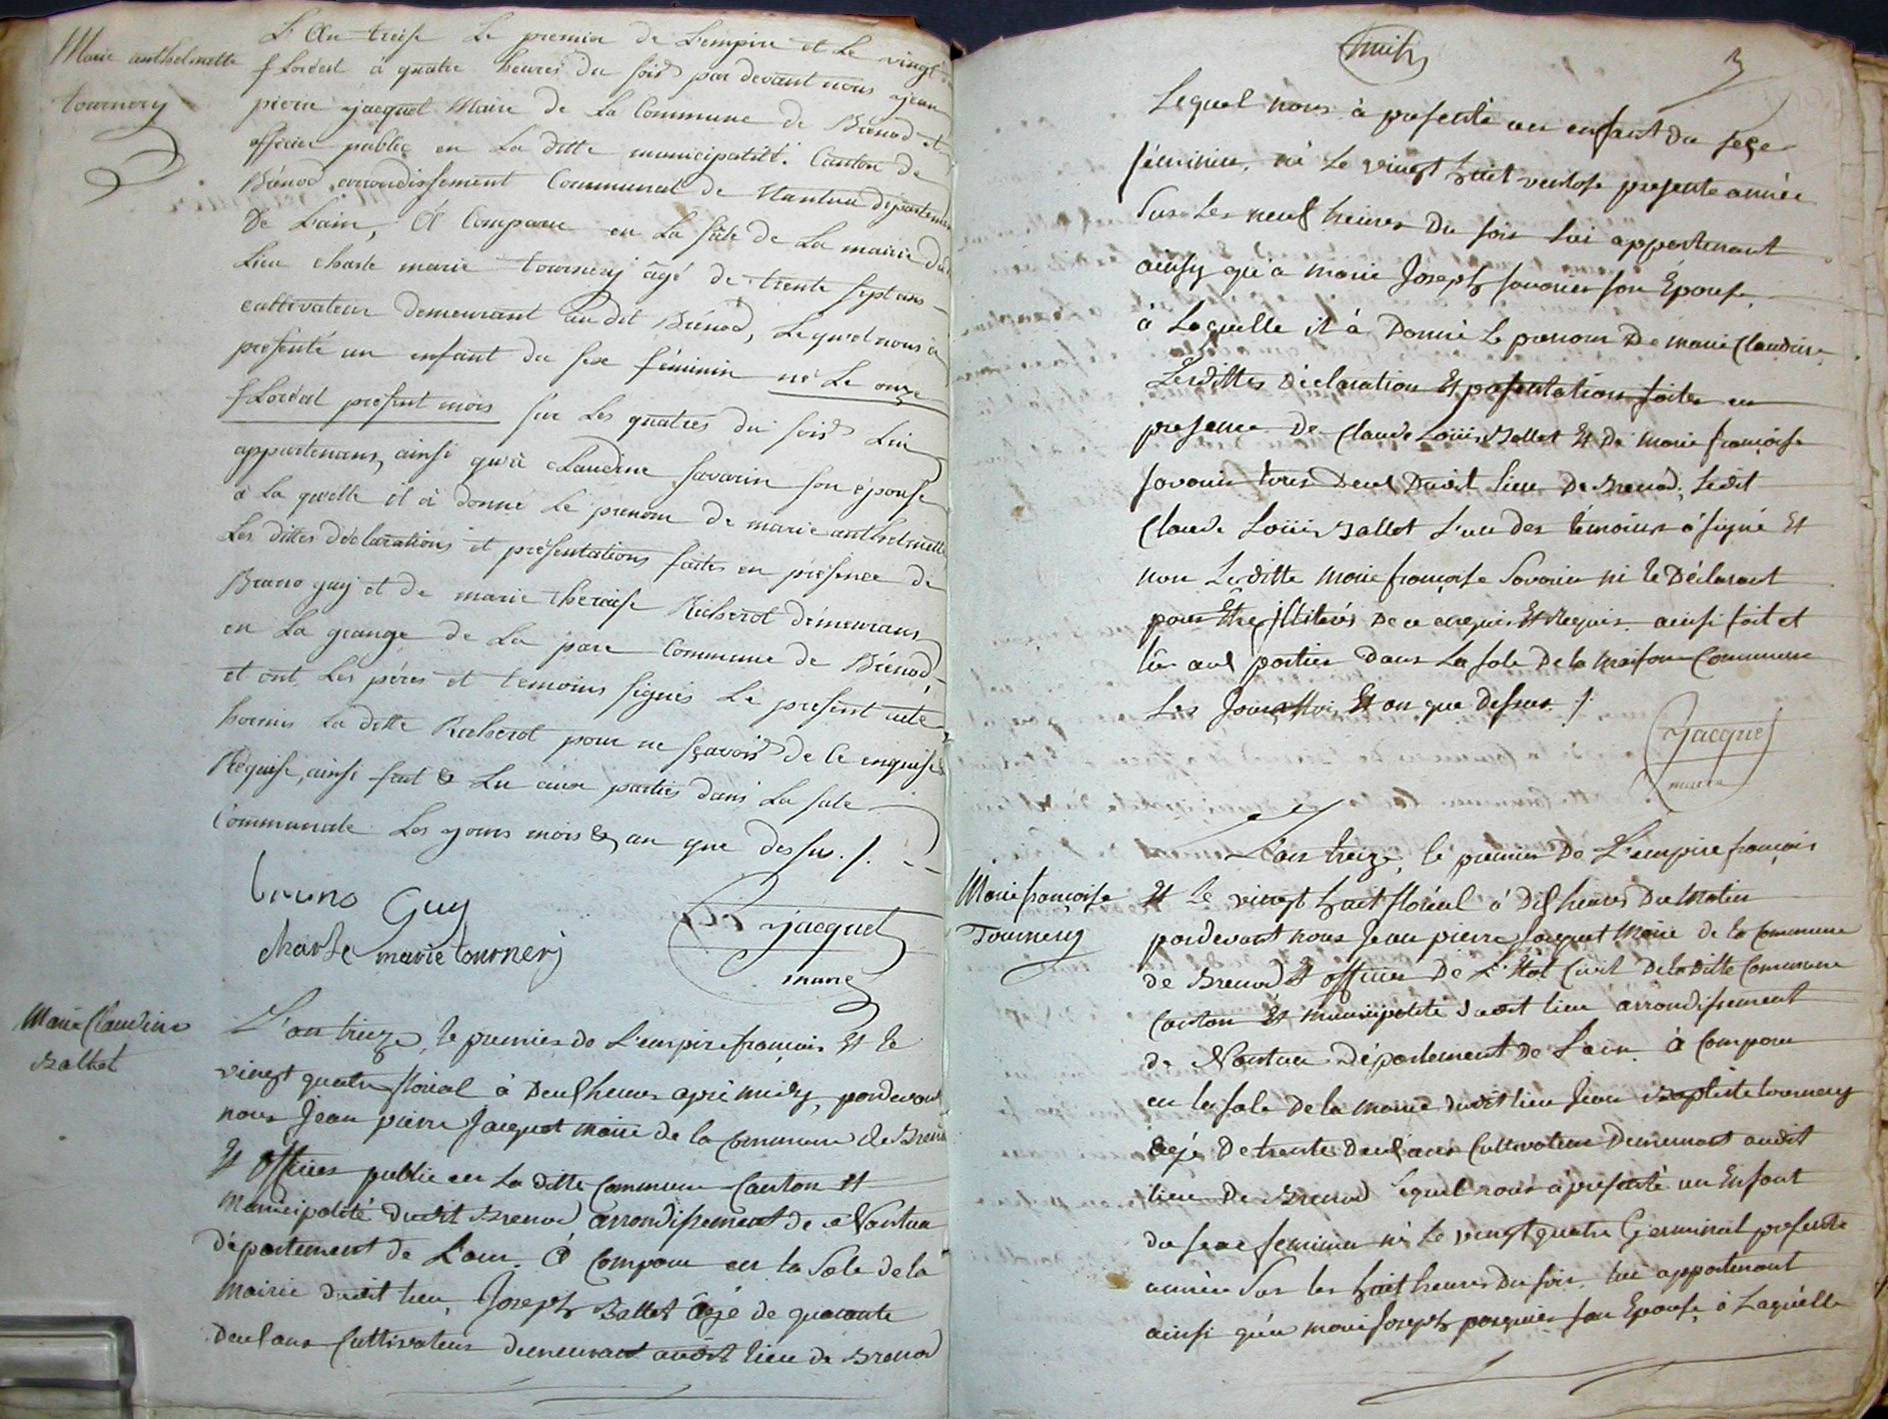 Marie anthelmette
tournery
L'An treise Le premier de L'empire et Le vingt
floréal à quatre heures du soir par devant nous jean
pierre jacquet Maire de La Commune de Brénod et
officier public en La ditte municipalité. Canton de
Brénod, arrondissement Communal de Nantua département
De Lain, A Comparu en La sale de La mairie dud
Lieu charle marie tournery âgé de trente sept ans
cultivateur demeurant audit Brénod, Lequel nous a
présenté un enfant du sexe féminin né Le onze
floréal présent mois sur Les quatres du soir Lui
appartenans, ainsi qu'à claudine savarin son épouse
à La quelle il a donné Le prenom de marie anthelmette
Les dittes déclarations et présentations faites en présence de
Bruno guy et de marie théraise Richerot demeurans
en La grange de La pare Commune de Brénod,
et ont Les péres et temoins signés Le présent acte
hormis La ditte Richerot pour ne sçavoir de Ce enquise &
Réquise, ainsi fait & Lu aux parties dans La sale
Communale Les jours mois & an que dessus ./.
bruno Guy
charle marie tournerj
jacquet
maire
Marie Claudine
Ballet
L'an treize, le premier de L'empire français Et le
vingt quatre floréal à deux heures apré midy, pardevant
nous Jean pierre Jacquet maire de la Commune de Brenod
Et officier public en La ditte Commune Canton Et
Municipalité dudit Brenod arrondissement de Nantua
département de L'ain. A Comparu en la Sale de la
Mairie dudit lieu, Joseph Ballet âgé de quarante
deux ans Cultivateur demeurant audit lieu de Brenod
huit
3
Lequel nous à presenté un enfant du sexe
féminin, né Le vingt huit ventose presente année
Sur Les neuf heures Du soir lui appartenant
ainsy qu'a marie Joseph savarin son Épouse,
à Laquelle il à Donné Le prenom De marie Claudine,
Lesdittes déclaration Et présentation faites en
presence De Claude Loüis Ballet Et De marie françoise
savarin tous deux Dudit lieu De Brenod, Ledit
Claude Loüis Ballet L'un des témoins à signé Et
non Laditte marie françoise Savarin ni le Déclarant
pour Etre illitérés De ce enquis Et Requis ainsi fait et
lu aux parties Dans La sale De la maison Commune
Les Jour Mois Et an que dessus ./.
Jacquet
maire
Marie françoise
Tournery
L'an treize, le premier De L'empire français
Et Le vingt huit floréal à dix heures Du Matin
pardevant nous Jean pierre Jacquet Maire de la Commune
de Brenod Et officier De L'État Civil De laditte Commune
Canton Et Municipalité dudit lieu arrondissement
de Nantua Département De L'ain. à Comparu
en la sale De la mairie dudit lieu Jean Baptiste tournery
âgé De trente deux ans Cultivateur Demeurant audit
lieu De Brenod lequel nous à présenté un Enfant
du sexe feminin né Le vingt quatre Germinal presente
année Sur les huit heures Du soir. lui appartenant
ainsi qu'a marie Joseph pasquier son Epouse, à Laquelle